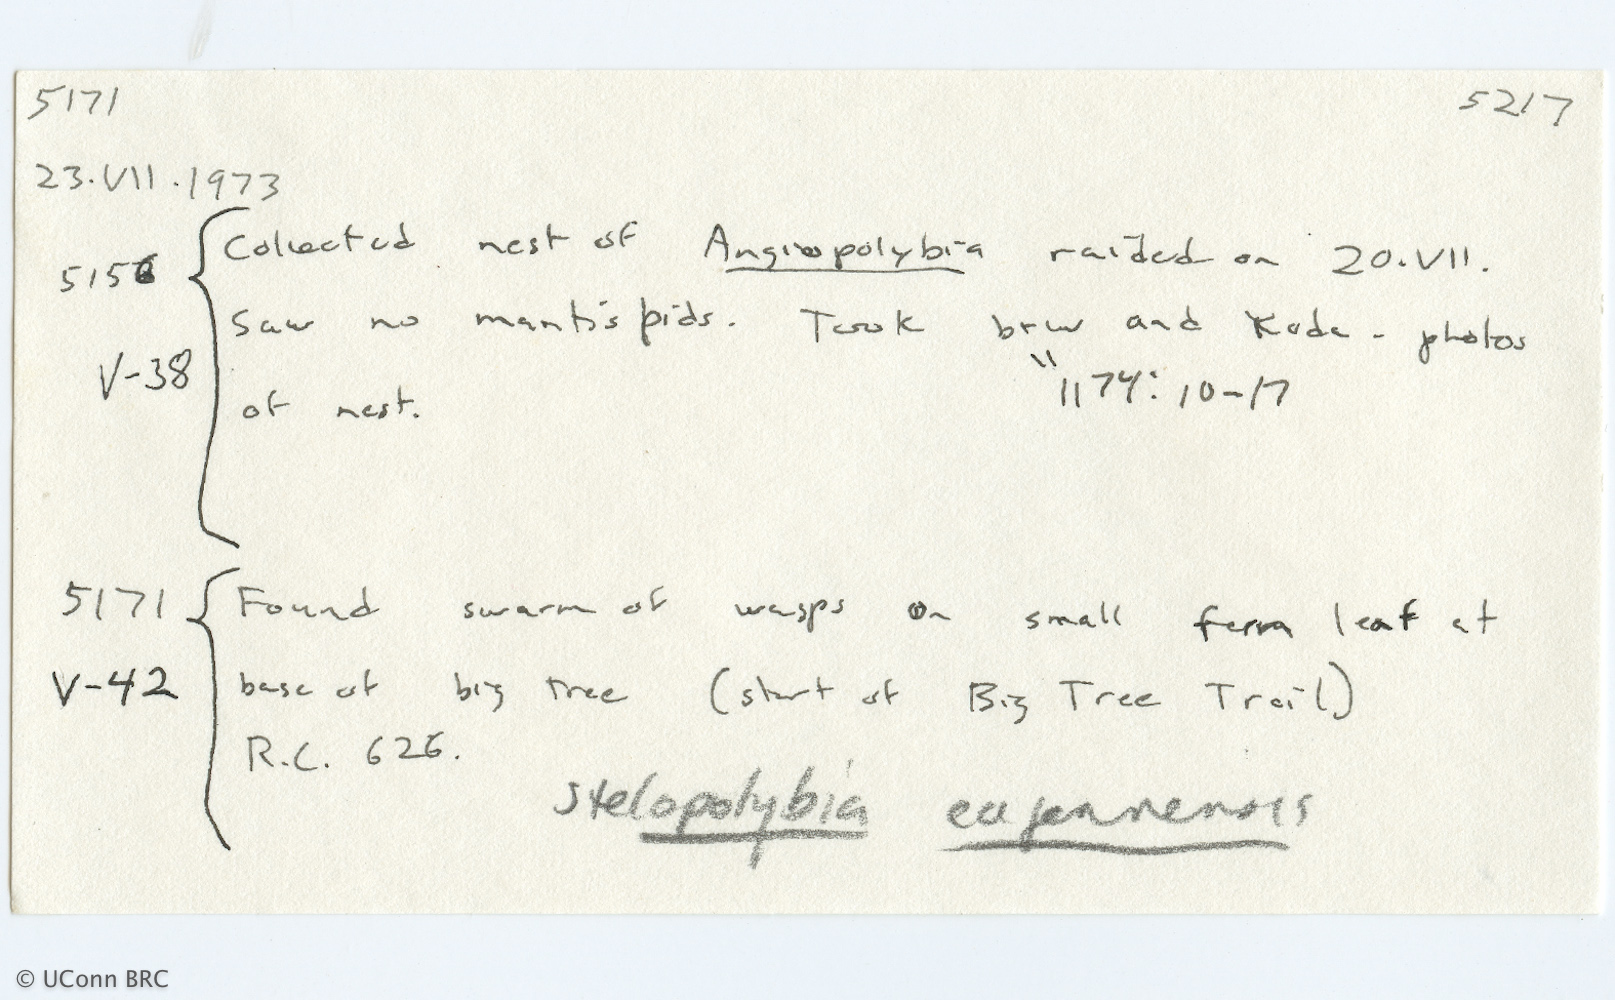 5171 5217
23.VII.1973
5156 Collected nest of Angiopolybia raided on 20.VII.
Saw no mantispids. Took b+w and Koda - photos
V-38 of nest. " 1174: 10-17
5171 Found swarm of wasps on small fern leaf at
V-42 base of big tree (start of Big Tree Trail)
R.C. 626.
Stelopolybia cajennensis
© UConn BRC